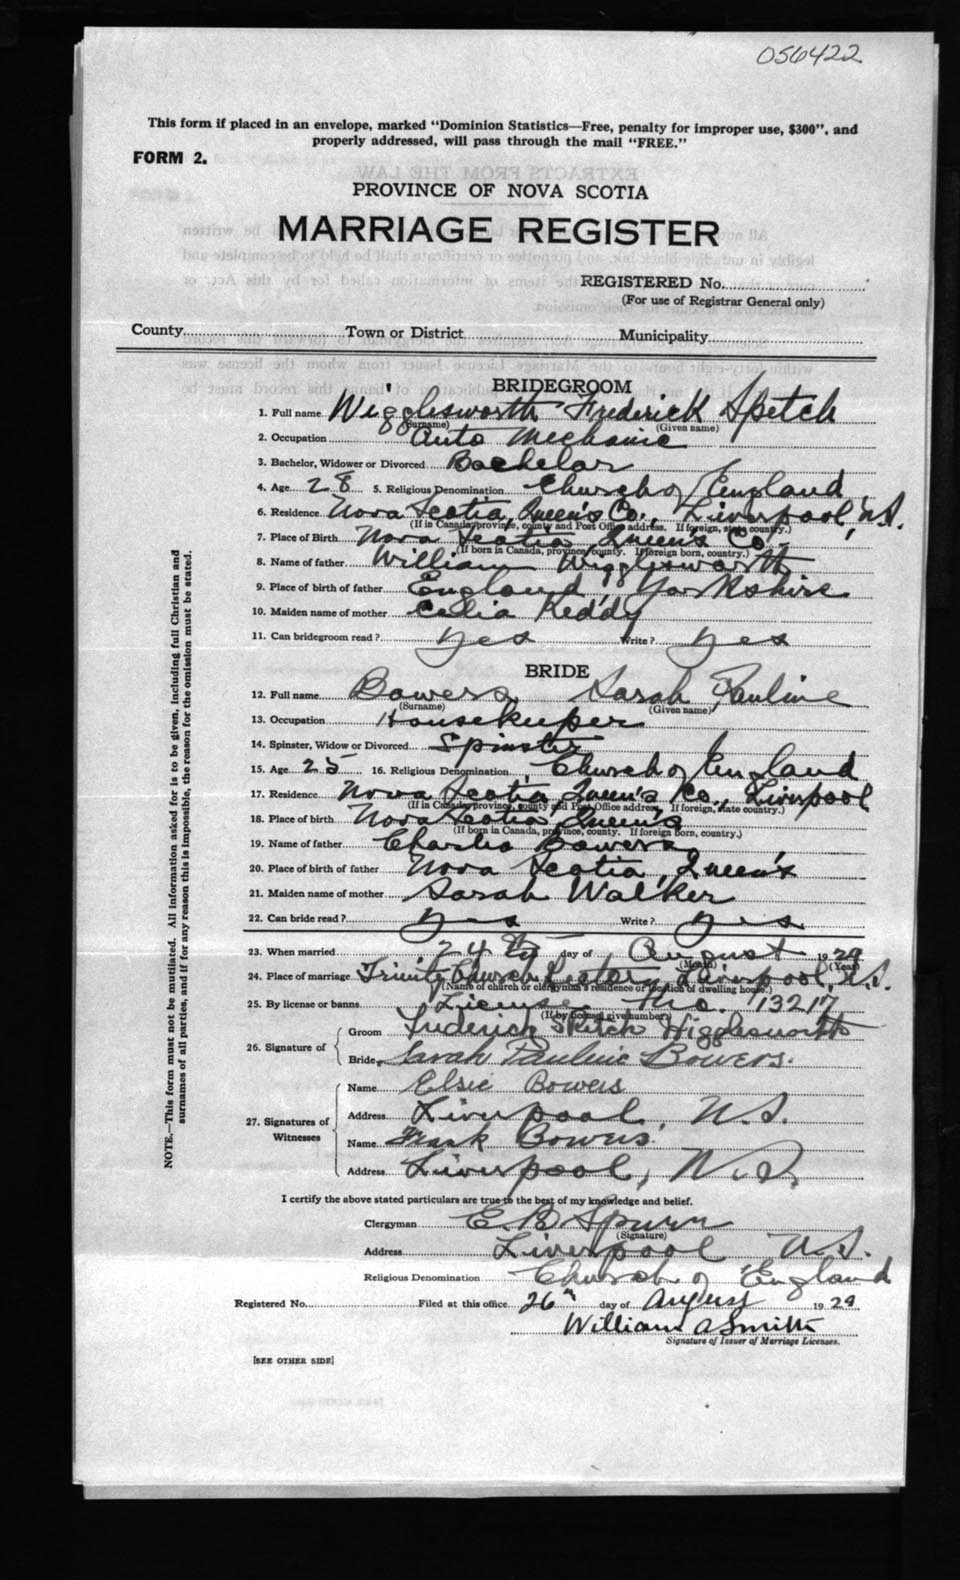 056422
This form if placed in an envelope, marked "Dominion Statistics—Free, penalty for improper use, $300", and
properly addressed, will pass through the mail "FREE."
FORM 2.
PROVINCE OF NOVA SCOTIA
MARRIAGE REGISTER
REGISTERED No.
(For use of Registrar General only)
County Town or District Municipality
BRIDEGROOM
1. Full name Wigglesworth Frederick Spetch
(Surname) (Given name)
2. Occupation Auto Mechanic
3. Bachelor, Widower or Divorced Bachelor
4. Age 28 5. Religious Denomination Church of England
6. Residence Nova Scotia, Queen's Co., Liverpool, N.S.
(If in Canada, province, county and Post Office address. If foreign, state country.)
7. Place of Birth Nova Scotia Queen's Co.
(If born in Canada, province, county. If foreign born, country.)
8. Name of father William Wigglesworth
9. Place of birth of father England, Yorkshire
10. Maiden name of mother Celia Reddy
11. Can bridegroom read? Yes Write? Yes
BRIDE
12. Full name Bowers Sarah Pauline
(Surname) (Given name)
13. Occupation Housekeeper
14. Spinster, Widow or Divorced Spinster
15. Age 25 16. Religious Denomination Church of England
17. Residence Nova Scotia, Queen's Co., Liverpool
(If in Canada, province, county and Post Office address. If foreign, state country.)
18. Place of birth Nova Scotia Queen's
(If born in Canada, province, county. If foreign born, country.)
19. Name of father Charles Bowers
20. Place of birth of father Nova Scotia, Queen's
21. Maiden name of mother Sarah Walker
22. Can bride read? Yes Write? Yes
23. When married 24th day of August 1929
(Month) (Year)
24. Place of marriage Trinity Church Rectory Liverpool, N.S.
(Name of church or clergyman's residence or location of dwelling house.)
25. By license or banns License No. 13217
(If by license give number)
26. Signature of Groom Frederick Spetch Wigglesworth
Bride Sarah Pauline Bowers.
27. Signatures of Witnesses
Name Elsie Bowers
Address Liverpool, N.S.
Name Frank Bowers.
Address Liverpool, N.S.
I certify the above stated particulars are true to the best of my knowledge and belief.
Clergyman E. B. Spurr
(Signature)
Address Liverpool N.S.
Religious Denomination Church of England
Registered No. Filed at this office 26th day of August 1929
William A Smith
Signature of Issuer of Marriage Licenses.
[SEE OTHER SIDE]
NOTE.—This form must not be mutilated. All information asked for is to be given, including full Christian and
surnames of all parties, and if for any reason this is impossible, the reason for the omission must be stated.